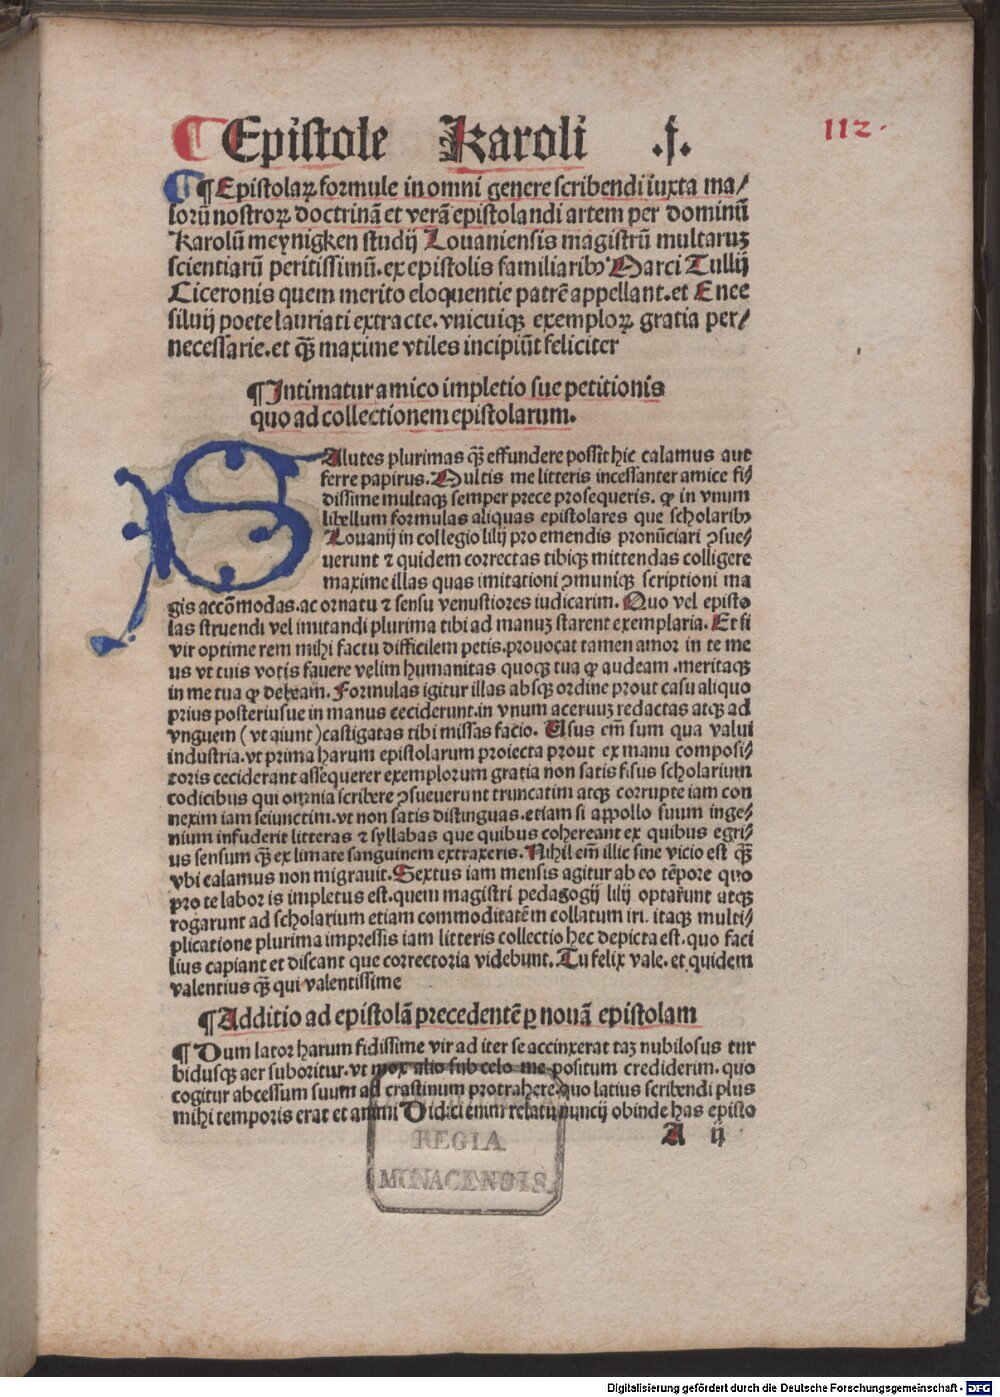 Epistole Karoli .f.
112.
¶Epistolaꝝ formule in omni genere scribendi iuxta ma⸗
iorū nostroꝝ doctrinā et verā epistolandi artem per dominū
Karolū meynigken studij Louaniensis magistrū multaruꝫ
scientiarū peritissimū. ex epistolis familiaribꝰ Marci Tullij
Ciceronis quem merito eloquentie patrē appellant. et Enee
siluij poete lauriati extracte. vnicuiqꝫ exemploꝝ gratia per⸗
necessarie. et qꝫ̄ maxime vtiles incipiūt feliciter
¶Intimatur amico impletio sue petitionis
quo ad collectionem epistolarum.
SAlutes plurimas qꝫ̄ effundere possit hic calamus aut
ferre papirus. Multis me litteris incessanter amice fi⸗
dissime multaqꝫ semper prece prosequeris. ꝙ in vnum
libellum formulas aliquas epistolares que scholaribꝰ
Louanij in collegio lilij pro emendis pronūciari ꝯsue⸗
uerunt ⁊ quidem correctas tibiqꝫ mittendas colligere
maxime illas quas imitationi ꝯmuniqꝫ scriptioni ma
gis accōmodas. ac ornatu ⁊ sensu venustiores iudicarim. Quo vel episto
las struendi vel imitandi plurima tibi ad manuꝫ starent exemplaria. Et si
vir optime rem mihi factu difficilem petis. prouocat tamen amor in te me
us vt tuis votis fauere velim humanitas quoqꝫ tua ꝙ audeam .meritaqꝫ
in me tua ꝙ debeam. Formulas igitur illas absqꝫ ordine prout casu aliquo
prius posteriusue in manus ceciderunt. in vnum aceruuꝫ redactas atqꝫ ad
vnguem (vt aiunt) castigatas tibi missas facio. Usus em̄ sum qua valui
industria. vt prima harum epistolarum proiecta prout ex manu composi⸗
toris ceciderant assequerer exemplorum gratia non satis fisus scholarium
codicibus qui omnia scribere ꝯsueuerunt truncatim atqꝫ corrupte iam con
nexim iam seiunctim. vt non satis distinguas. etiam si appollo suum inge⸗
nium infuderit litteras ⁊ syllabas que quibus cohereant ex quibus egri⸗
us sensum qꝫ̄ ex limate sanguinem extraxeris. Nihil em̄ illic sine vicio est qꝫ̄
vbi calamus non migrauit. Sextus iam mensis agitur ab eo tēpore quo
pro te labor is impletus est. quem magistri pedagogij lilij optarūt atqꝫ
rogarunt ad scholarium etiam commoditatēm collatum iri. itaqꝫ multi⸗
plicatione plurima impressis iam litteris collectio hec depicta est. quo faci
lius capiant et discant que correctoria videbunt. Tu felix vale. et quidem
valentius qꝫ̄ qui valentissime
¶Additio ad epistolā precedentē ꝑ nouā epistolam
¶Dum lator harum fidissime vir ad iter se accinxerat taꝫ nubilosus tur
bidusqꝫ aer suboritur. vt mox alio sub celo me positum crediderim. quo
cogitur abcessum suum ad crastinum protrahere. quo latius scribendi plus
mihi temporis erat et animi Didici enim relatu nuncij obinde has episto
A ij
REGIA
MONACENSIS.
Digitalisierung gefördert durch die Deutsche Forschungsgemeinschaft - DFG